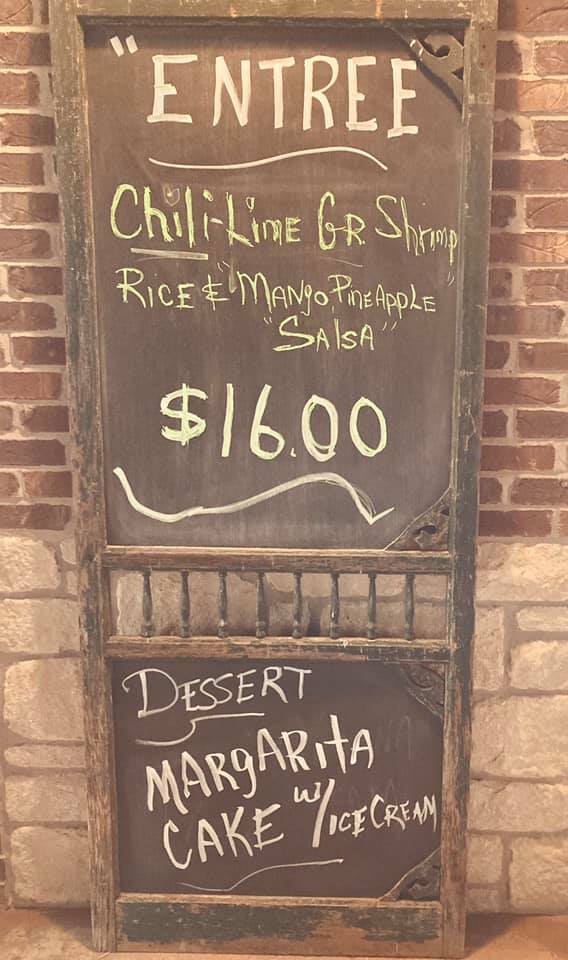 "ENTREE
Chili-Lime GR. Shrimp
RICE & "MANgo, PINEAPPLE"
"SAlsA"
$16.00
DESSERT
MARgARItA
CAKE w/ICE CREAM